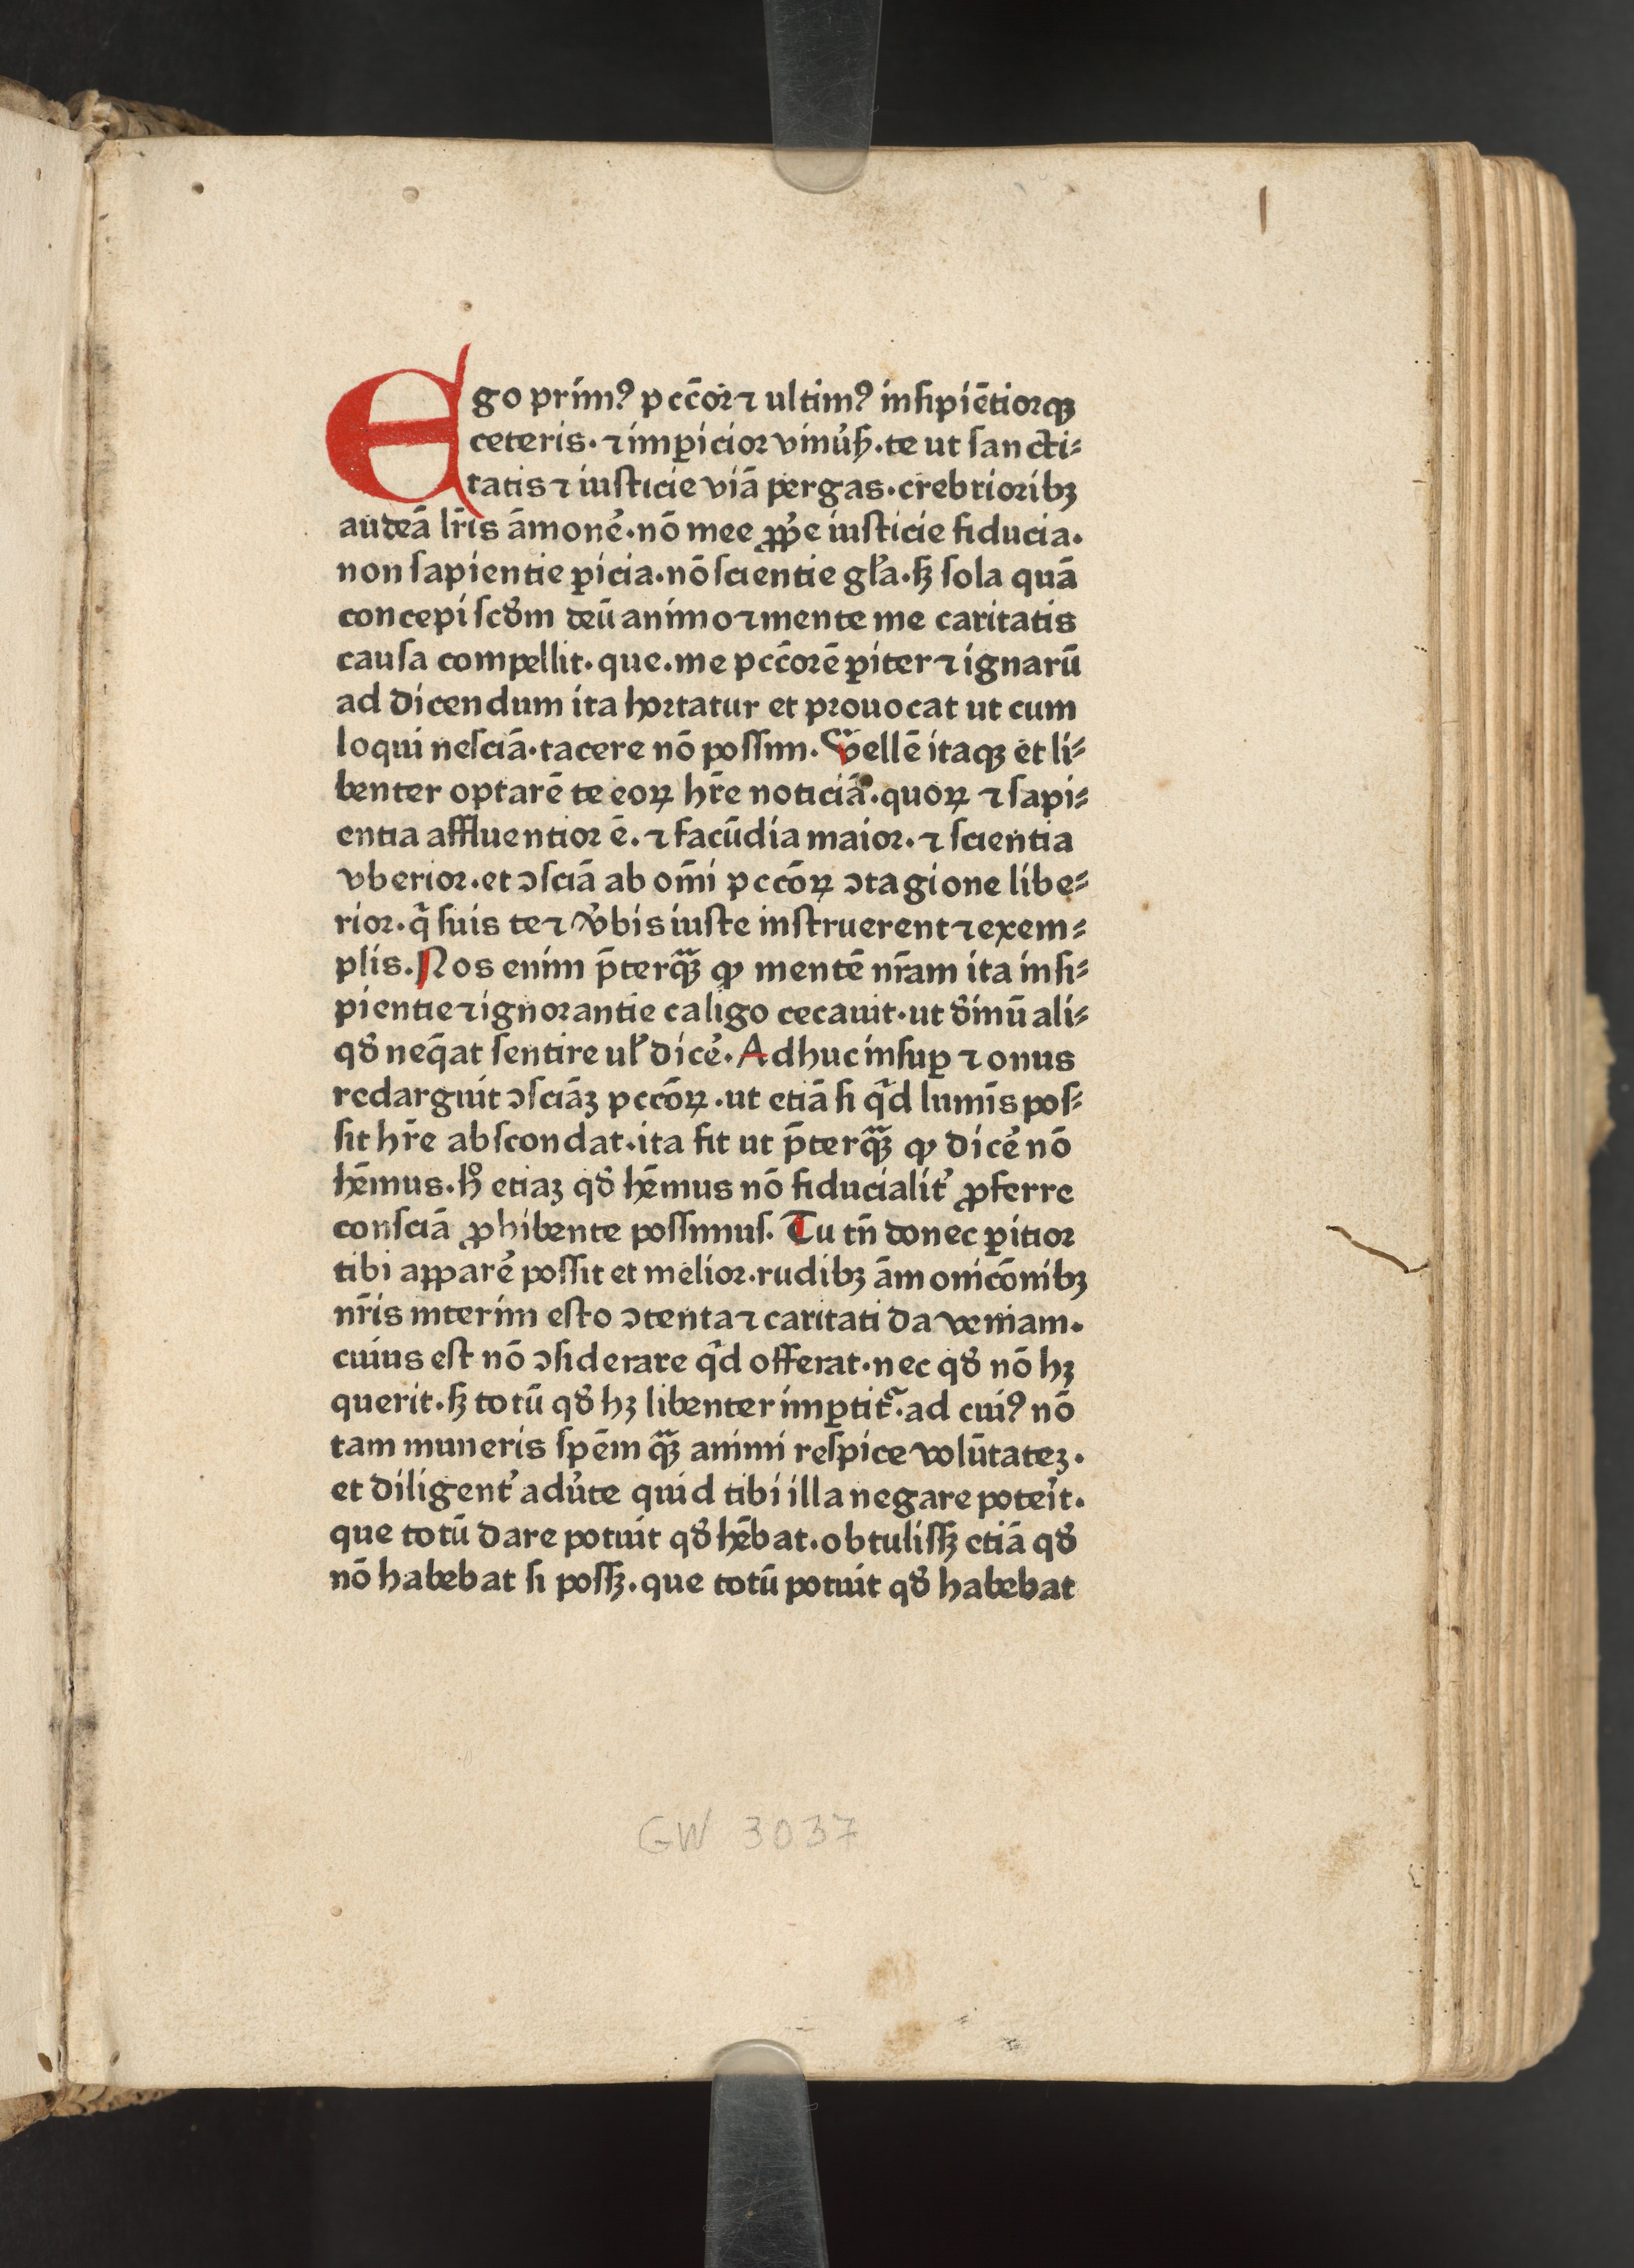 1
Ego prim⁹ pcc̄oꝝ ⁊ ultim⁹ insipiētiorqꝫ
ceteris · ⁊ imꝑicior vinu̓ſꝫ · te ut sancti⸗
tatis ⁊ iusticie viā pergas · crebrioribꝫ
audeā lr̄is āmone᷒ · nō mee ꝓp̓e iusticie fiducia ·
non sapientie ꝑicia · nō scientie gl̓a · sꝫ sola quā
concepi scd̓m deū animo ⁊ mente me caritatis
causa compellit · que · me pcc̄orē ꝑiter ⁊ ignarū
ad dicendum ita hortatur et prouocat ut cum
loqui nesciā · tacere nō possim · Vellē itaqꝫ et li⸗
benter optarē te eoꝝ hr̄e noticiā · quoꝝ ⁊ sapi⸗
entia affluentior ē · ⁊ facūdia maior · ⁊ scientia
vberior · et ꝯsciā ab om̄i pccōꝝ ꝯtagione libe⸗
rior · q̄ suis te ⁊ v̓bis iuste instruerent ⁊ exem⸗
plis · Nos enim p̄terqꝫ ꝙ mentē nr̄am ita insi⸗
pientie ⁊ ignorantie caligo cecauit · ut d̓inū ali⸗
qd̓ neq̄at sentire ul̓ dice᷒ · Adhuc insuꝑ ⁊ onus
redarguit ꝯsciāꝫ pccōꝝ · ut etiā si qͥd lumīs pos⸗
sit hr̄e abscondat · ita fit ut p̄terqꝫ ꝙ dice᷒ nō
hēmus · hͦ etiaꝫ qd̓ hēmus nō fiducialit̓ ꝓferre
consciā ꝓhibente possumus · Tu tn̄ donec ꝑitior
tibi appare᷒ possit et melior · rudibꝫ āmonicōnibꝫ
nr̄is interim esto ꝯtenta ⁊ caritati da veniam ·
cuius est nō ꝯsiderare qͥd offerat · nec qd̓ nō hꝫ
querit · sꝫ totū qd̓ hꝫ libenter imꝑtit᷑ · ad cui⁹ nō
tam muneris spēm qꝫ animi respice volūtateꝫ ·
et diligent̓ adu̓te quid tibi illa negare potei̓t ·
que totū dare potuit qd̓ hēbat · obtulissꝫ etiā qd̓
nō habebat si possꝫ · que totū potuit qd̓ habebat
GW 3037